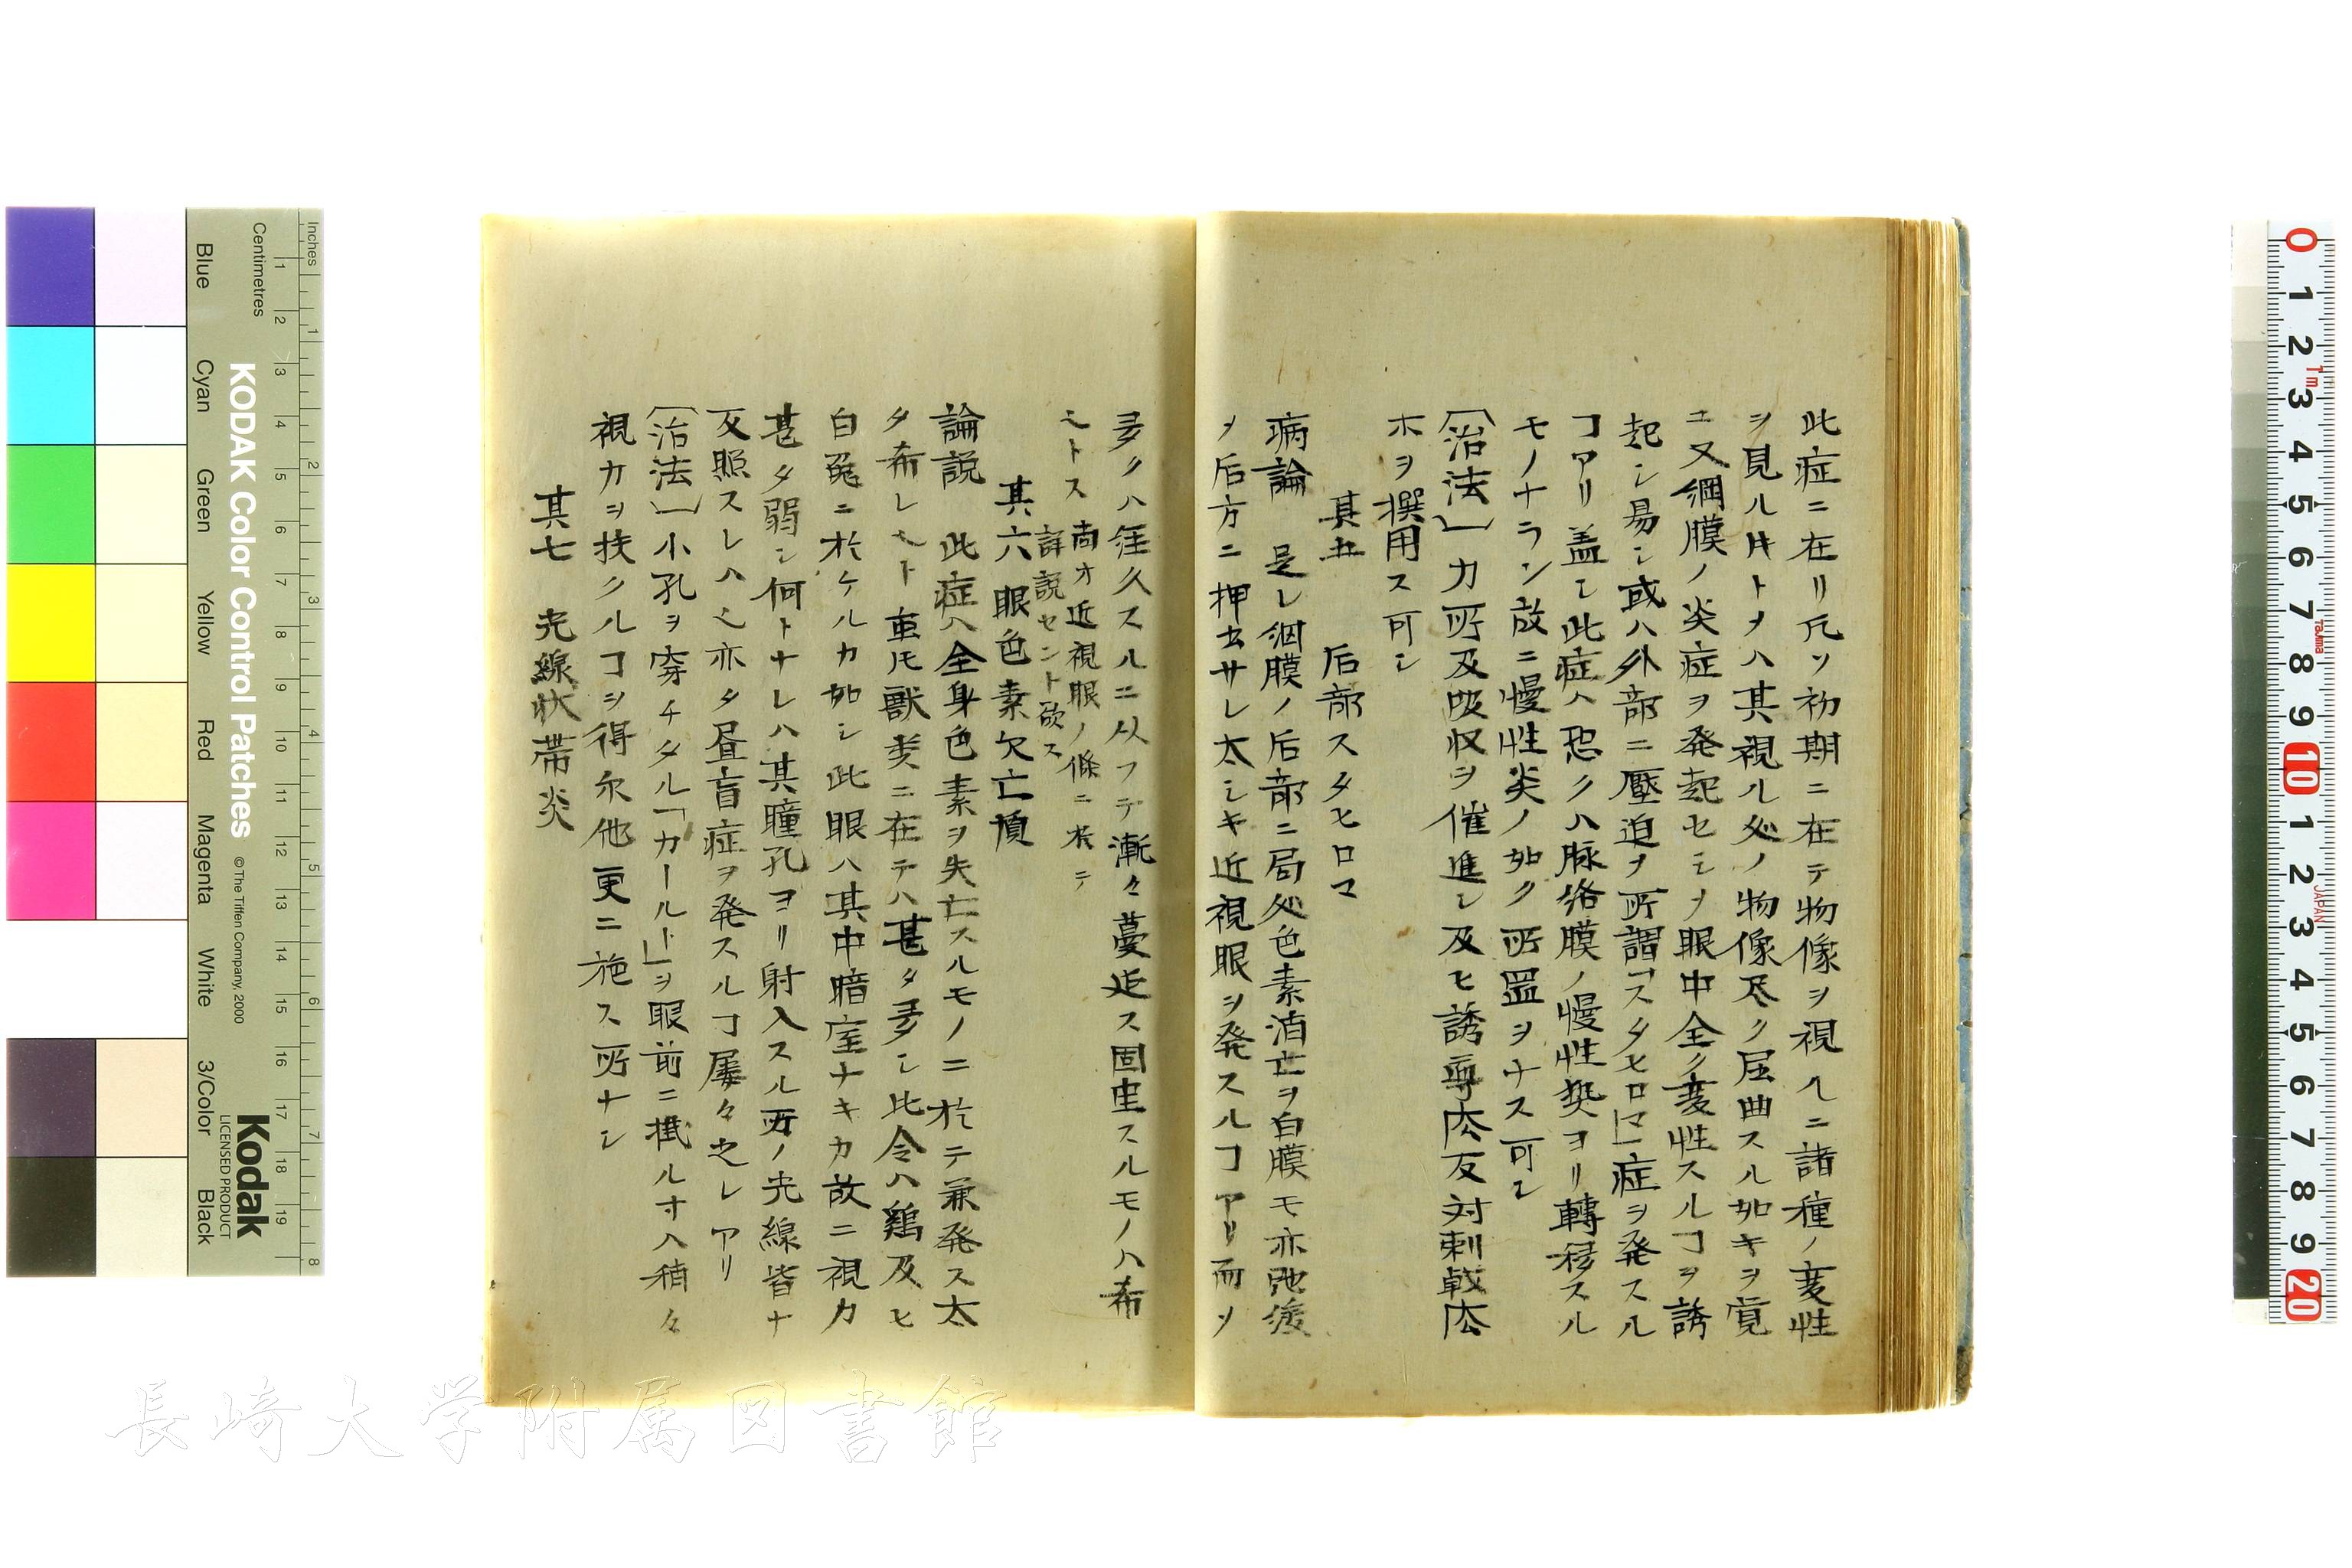 此症ニ在リ凡ソ初期ニ在テ物像ヲ視ルニ諸種ノ変性
ヲ見ル其視ル処ノ物像尽ク屈曲スル如キヲ覚
ユ又網膜ノ炎症ヲ発起セシメ眼中全ク変性スルヿヲ誘
起シ易シ或ハ外部ニ壓迫ヲ所謂「スタヒロマ」症ヲ発スル
ヿアリ盖シ此症ハ恐クハ脉絡膜ノ慢性炎ヨリ轉移スル
モノナラン故ニ慢性炎ノ如ク所置ヲナス可シ
〔治法〕力所及吸収ヲ催進シ及ヒ誘導法反対刺戟法
ホヲ撰用ス可シ
其五　后部スタヒロマ
病論　是レ網膜ノ后部ニ局処色素消亡ヲ白膜モ亦弛緩
ヲ后方ニ押出サレ太シキ近視眼ヲ発スルヿアリ而ソ
多クハ経久スルニ从フテ漸々蔓延ス固定スルモノハ希
モトス 尚オ近視眼ノ條ニ於テ
詳説セント欲ス
其六　眼色素欠亡
論説　此症ハ全身色素ヲ失亡スルモノニ於テ兼発ス太
タ希レモト雖𪜈獣类ニ在テハ甚タ多シ比令ハ鶏及ヒ
白兎ニ於ケルカ如シ此眼ハ其中暗室ナキカ故ニ視力
甚タ弱シ何トナレハ其瞳孔ヨリ射入スル所ノ光線皆ナ
反照スレハ也亦タ昼盲症ヲ発スルヿ屡々之レアリ
〔治法〕小孔ヲ穿チタル「カールト」ヲ眼前ニ掛ルキハ稍々
視力ヲ扶クルヿヲ得尓他更ニ施ス所ナシ
其七　光線状帯炎
Inches
Centimetres
1 2 3 4 5 6 7 8 9 10 11 12 13 14 15 16 17 18 19
1 2 3 4 5 6 7 8
KODAK Color Control Patches
©The Tiffen Company, 2000
Kodak
LICENSED PRODUCT
Blue Cyan Green Yellow Red Magenta White 3/Color Black
0 1 2 3 4 5 6 7 8 9 10 1 2 3 4 5 6 7 8 9 20
1m
Tajima
JAPAN
長崎大学附属図書館